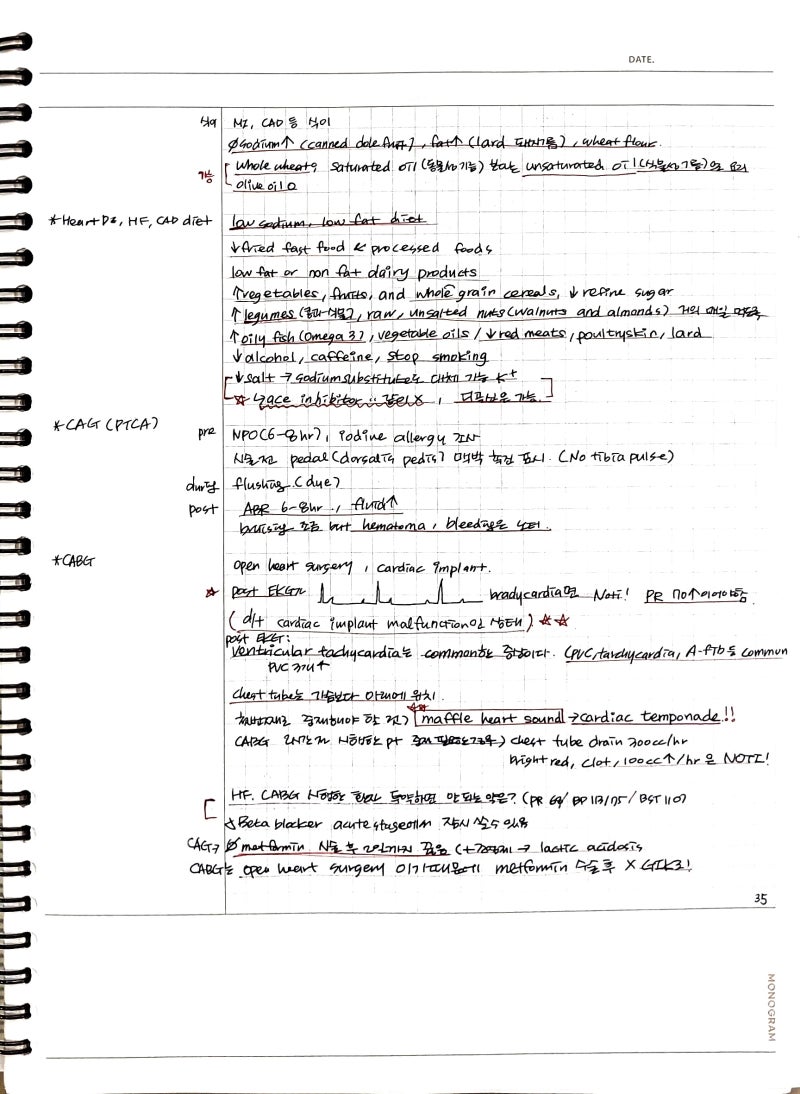 DATE.
식이 MI, CAD 등 식이
∅ sodium↑ (canned dole fruit), fat↑ (lard 돼지기름), wheat flour.
가능 whole wheat, saturated oil (동물성기름) 보다는 unsaturated oil (식물성기름)으로 요리
olive oil O
*Heart Dz, HF, CAD diet low sodium, low fat diet
↓fried fast food & processed foods
low fat or non fat dairy products
↑vegetables, fruits, and whole grain cereals, ↓ refine sugar
↑ legumes (콩과식물), raw, unsalted nuts (walnuts and almonds) 거의 매일
↑ oily fish (omega 3), vegetable oils / ↓ red meats, poultry skin, lard
↓ alcohol, caffeine, stop smoking
↓ salt → sodium substitute도 대체 가능 K+
☆ ace inhibitor ∵ 칼륨X, 가능
*CAG (PTCA) pre NPO (6-8hr), iodine allergy 검사
시술전 pedal (dorsalis pedis) 맥박 측정 표시. (No tibia pulse)
during flushing (due)
post ABR 6-8hr, fluid↑
bruising 조금 but hematoma, bleeding은 노티.
*CABG open heart surgery, cardiac implant.
☆ post EKG가 bradycardia면 Noti! PR 70↑이어야함
(d/t cardiac implant malfunction인 상태) ☆☆
post EKG:
ventricular tachycardia는 common한 증상이다. (PVC, tachycardia, A-fib 등 commun
PVC 3개↑
chest tube는 가슴보다 아래에 위치.
중재해야 할 것) ☆☆ maffle heart sound → cardiac temponade!!
CABG 2시간 전 시행한 pt 중재 필요한 경우) chest tube drain 300cc/hr
bright red, clot, 100cc↑/hr 은 NOTI!
HF. CABG 시행한 환자 투약하면 안되는 약은? (PR 69/ BP 113/75/ BST 110)
☆ Beta blocker acute stage에서 잠시 쓸수 있음
CAG → ∅ metformin 시술 후 2일까지 끊음 (+조영제 → lactic acidosis
CABG는 open heart surgery 이기 때문에 metformin 수술 후 X
35
MONOGRAM